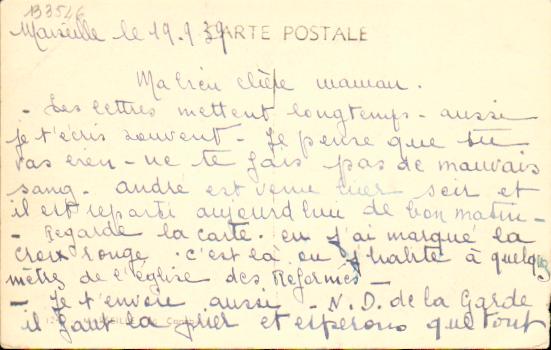 133546
Marseille le 19.9.39 CARTE POSTALE
Ma bien chère maman.
- Les lettres mettent longtemps - aussi
je t'écris souvent - Je pense que tu
vas bien - ne te fais pas de mauvais
sang - André est venu hier soir et
il est reparti aujourd'hui de bon matin -
- Regarde la carte. ou j'ai marqué la
croix rouge. c'est là ou j'habite à quelq
mètres de l'église des Reformés -
- Je t'envoie aussi - N.D. de la Garde
il faut la prier et espérons que tout
MARSEILLE